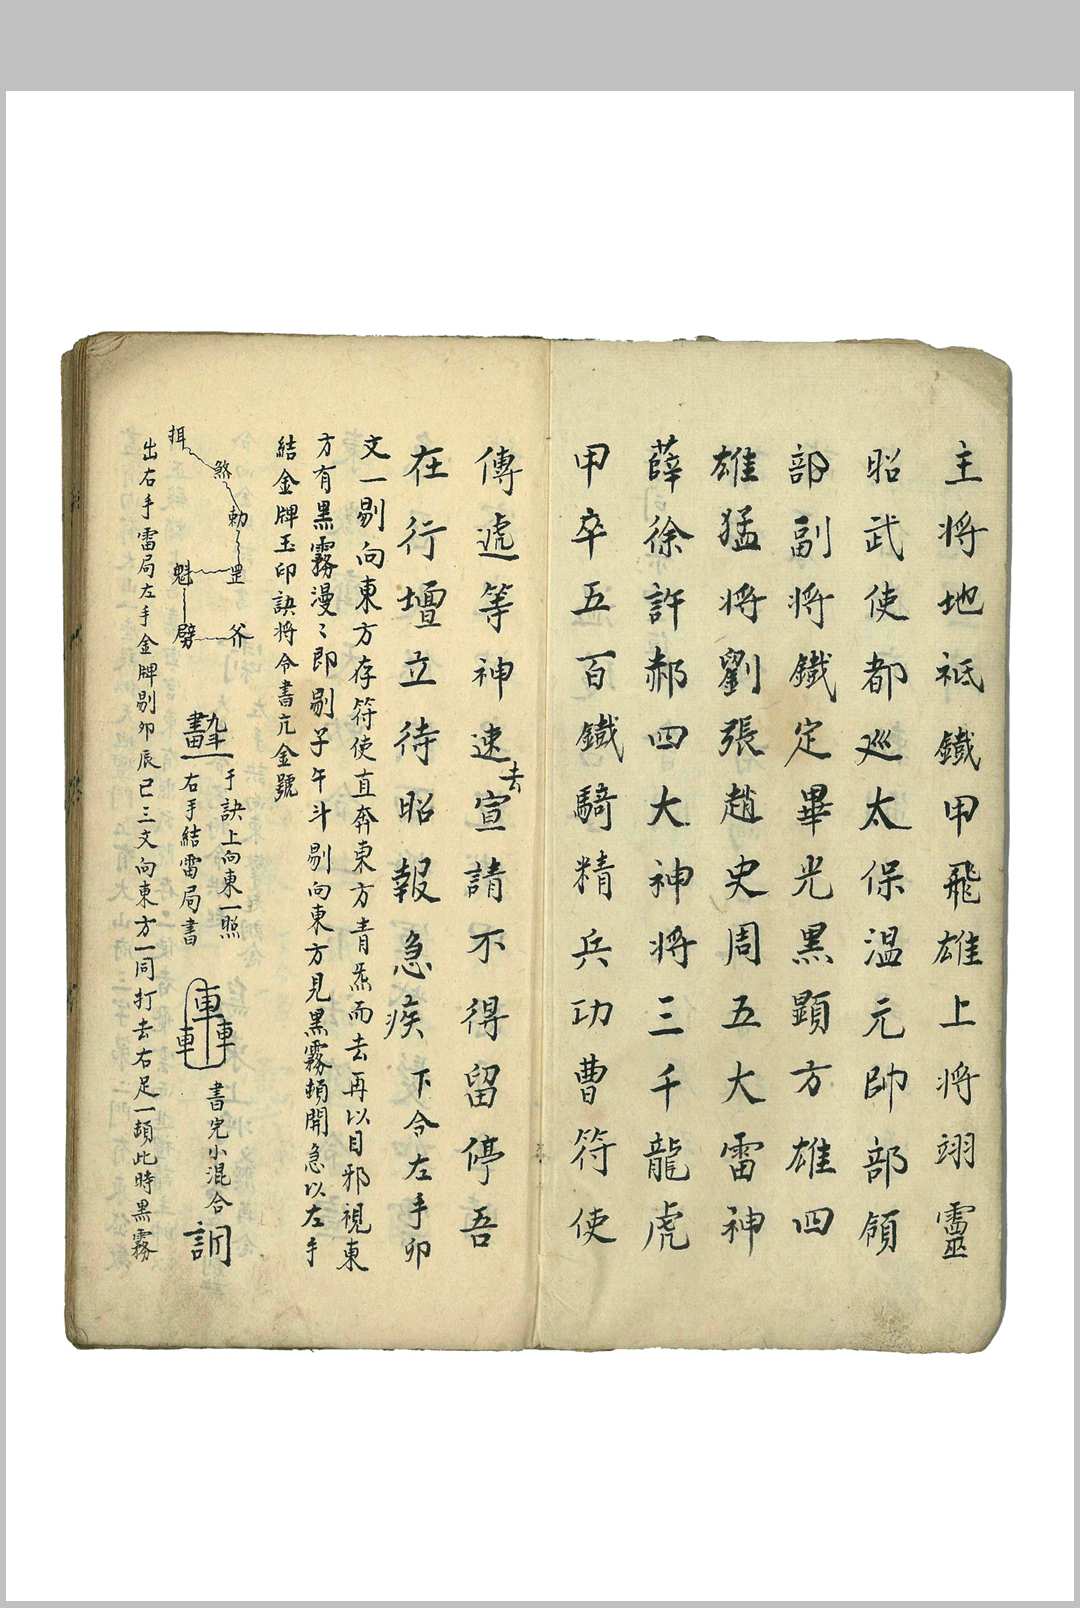 主将地祇鐵甲飛雄上将翊靈
昭武使都廵太保温元帥部領
部副将鐵定畢光黑顕方雄四
雄猛将劉張趙史周五大雷神
薛徐許郝四大神将三千龍虎
甲卒五百鐡騎精兵功曹符使
傳遞等神速去宣請不得留停吾
在行壇立待昭報急疾下令左手卯
文一剔向東方存符使直奔東方青炁而去再以目邪視東
方有黑霧漫〻即剔子午斗剔向東方見黑霧頓開急以左手
結金牌玉印訣将令書亢金號
煞
勅
罡
魁
劈
斧
于訣上向東一照
右手結雷局書
車
車
車
書完小混合
出右手雷局左手金牌剔卯辰巳三文向東方一同打去右足一頓此時黑霧